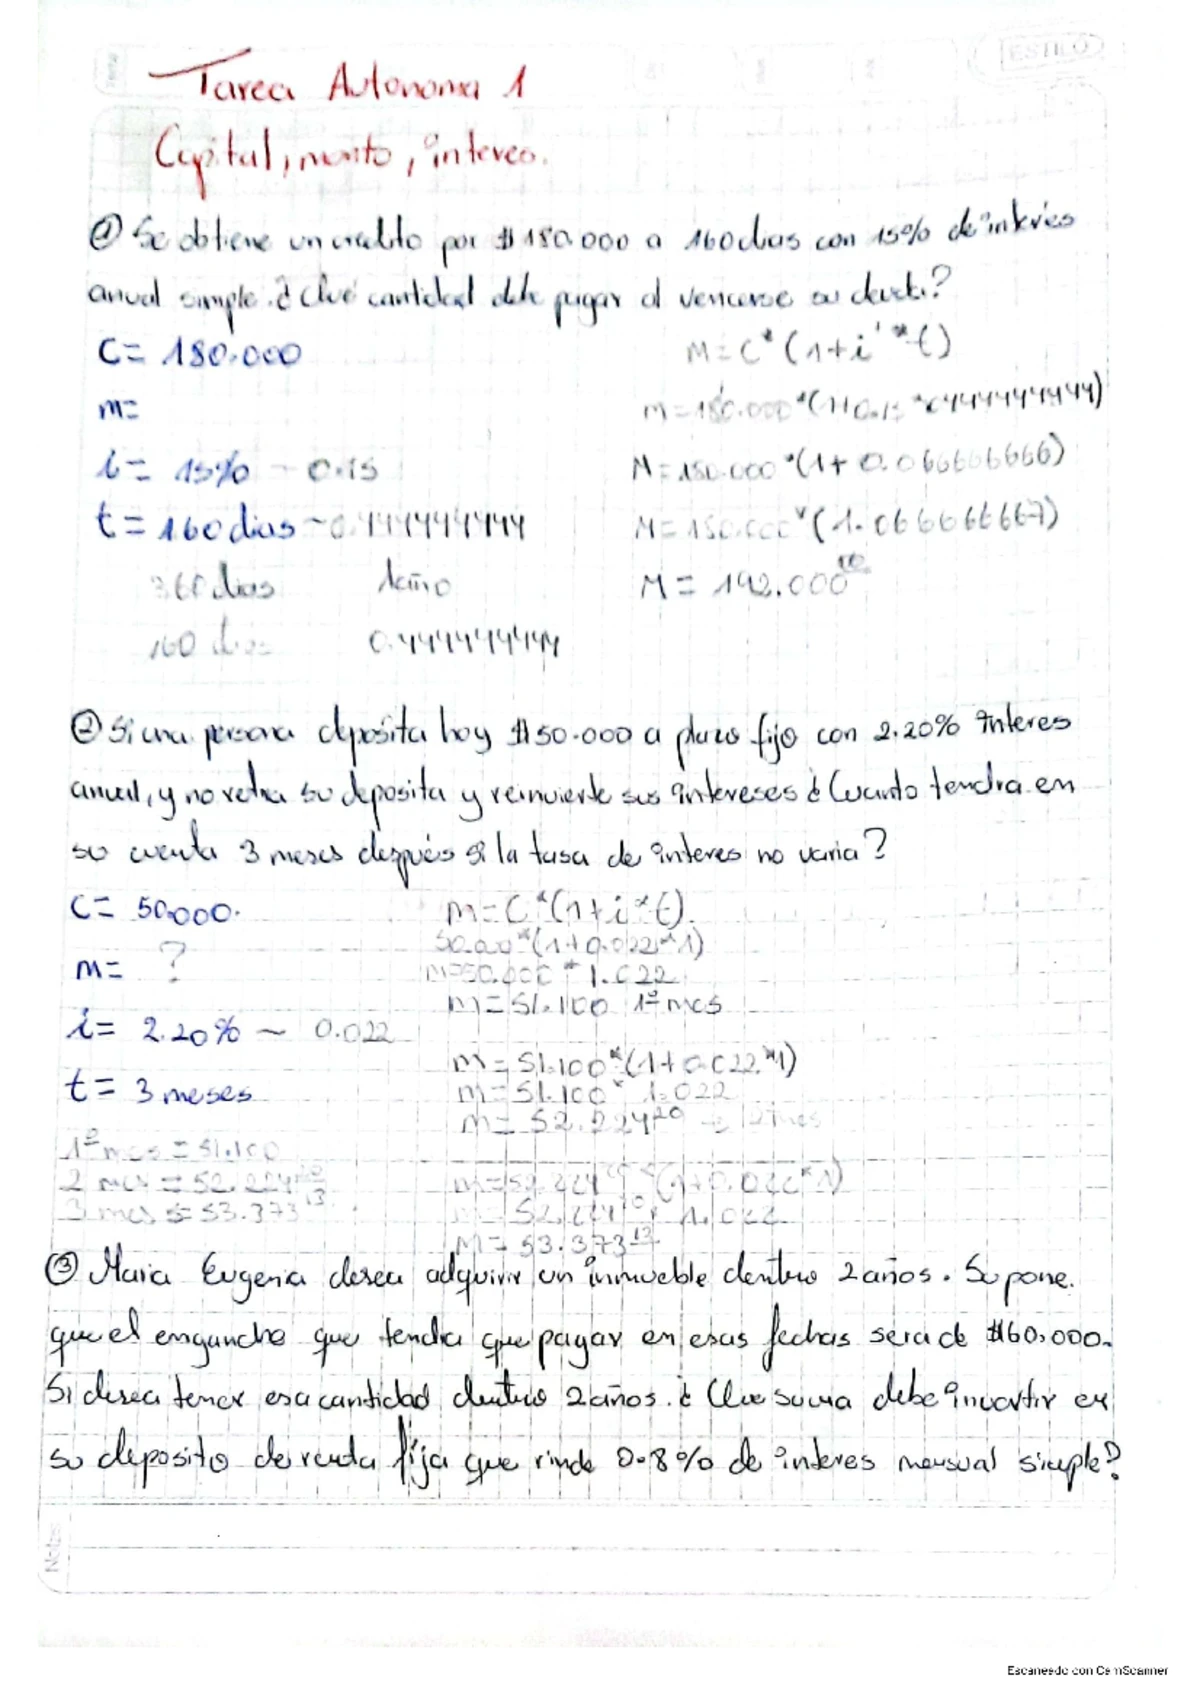 ESTILO
Tarea Autonoma 1
Capital, monto, interes.
① Se obtiene un credito por $180.000 a 160 dias con 15% de interés
anual simple. ¿Que cantidad debe pagar al vencerse su deuda?
C= 180.000
M=C*(1+i*t)
m=
m=180.000*(1+0.15*0.4444444444)
i= 15% - 0.15
M=180.000*(1+0.0666666666)
t=160 dias ~0.444444444
M=180.000*(1.0666666667)
360 dias 1 año
M= 192.000
160 dias 0.444444444
② Si una persona deposita hoy $50.000 a plazo fijo con 2.20% interes
anual, y no retira su deposita y reinvierte sus intereses ¿Cuanto tendra en
su cuenta 3 meses después si la tasa de interes no varia?
C= 50.000.
m=C*(1+i*t).
50.000*(1+0.022*1)
m= ?
m=50.000*1.022
m=51.100 1º mes
i= 2.20% ~ 0.022
m=51.100*(1+0.022*1)
t= 3 meses
m=51.100* 1.022
m= 52.224²⁰ → 2 mes
1º mes = 51.100
2 mes = 52.224²⁰
m=52.224²⁰*(1+0.022*1)
3 mes = 53.373¹³
m= 52.224²⁰* 1.022
M= 53.373¹³
③ Maria Eugenia desea adquirir un inmueble dentro 2 años. Supone.
que el enganche que tendra que pagar en esas fechas sera de $160.000.
Si desea tener esa cantidad dentro 2 años. ¿ Que suma debe invertir en
su deposito de renta fija que rinde 0.8% de interes mensual simple?
Notas
Escaneado con CamScanner